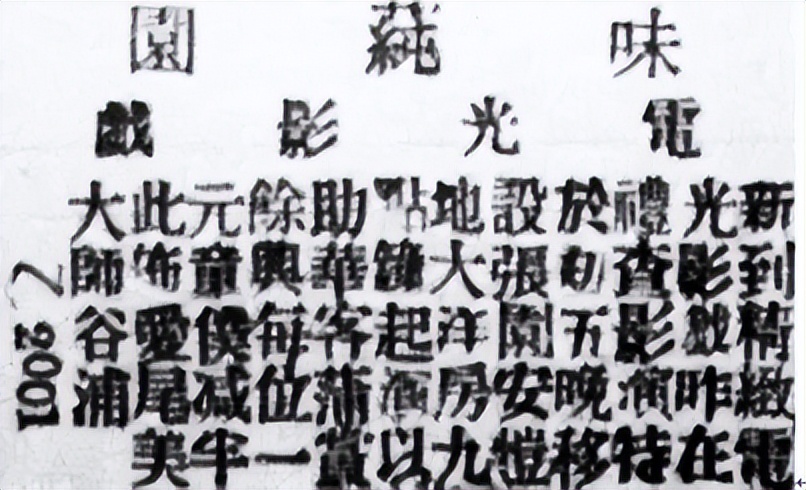 味蒓園
電光影戲
新到精緻電
光影戲昨在
禮查影演特
於初五晚移
設張園安愷
地大洋房九
點鐘起演以
助華客蒲
餘興每位一
元童僕減半
此佈愛尾美
大師谷浦
2001